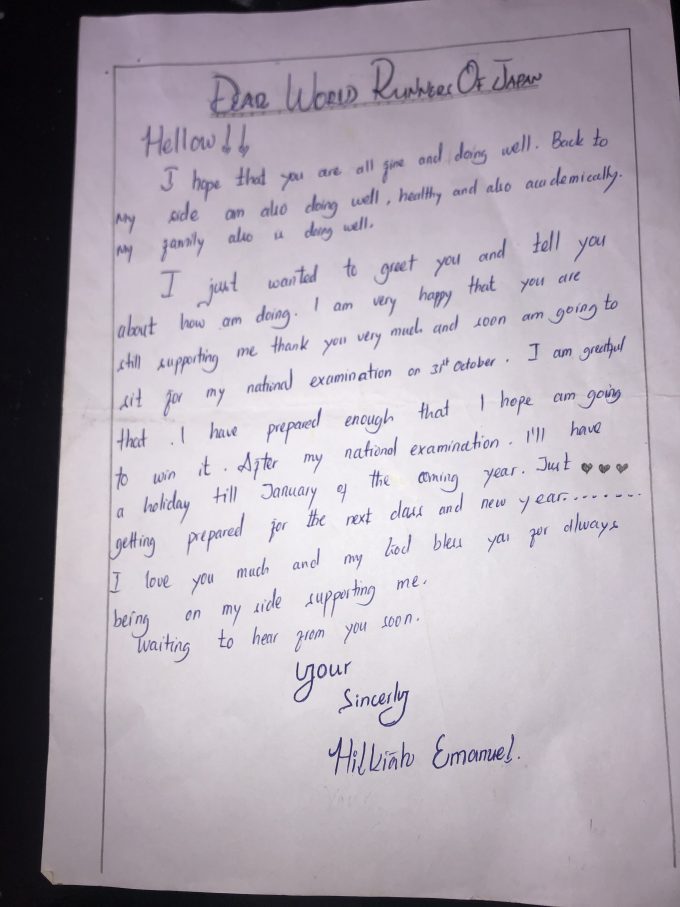 DEAR WORLD RUNNERS OF JAPAN
Hellow!!
I hope that you are all fine and doing well. Back to
My side am also doing well, healthy and also academically.
My family also is doing well.
I just wanted to greet you and tell you
about how am doing. I am very happy that you are
still supporting me thank you very much and soon am going to
sit for my national examination on 31st October. I am greatful
that. I have prepared enough that I hope am going
to win it. After my national examination. I'll have
a holiday till January of the coming year. Just ♥♥♥
getting prepared for the next class and new year........
I love you much and my God bless you for allways
being on my side supporting me.
Waiting to hear from you soon.
Your
Sincerly
Hilkiah Emanuel.